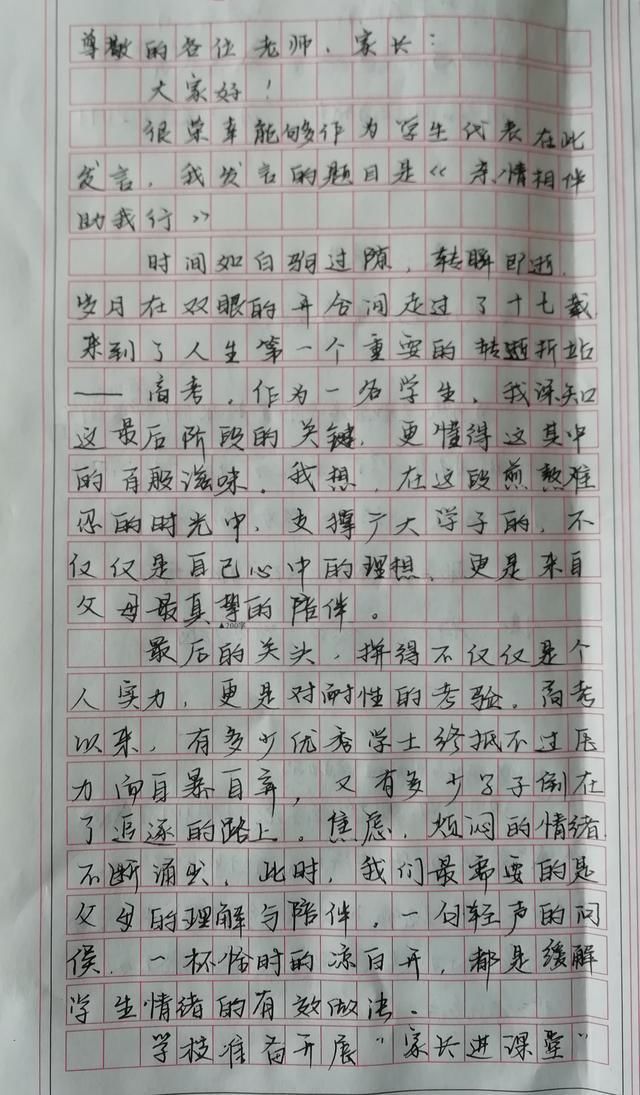 尊敬的各位老师、家长：
大家好！
很荣幸能够作为学生代表在此
发言，我发言的题目是《亲情相伴
助我行》
时间如白驹过隙，转瞬即逝，
岁月在双眼的开合间走过了十七载
来到了人生第一个重要的转折站
——高考，作为一名学生，我深知
这最后阶段的关键，更懂得这其中
的百般滋味。我想，在这段煎熬难
忍的时光中，支撑广大学子的，不
仅仅是自己心中的理想，更是来自
父母最真挚的陪伴。
▲200字
最后的关头，拼得不仅仅是个
人实力，更是对耐性的考验。高考
以来，有多少优秀学士终抵不过压
力而自暴自弃，又有多少学子倒在
了追逐的路上。焦虑，烦闷的情绪
不断涌出，此时，我们最需要的是
父母的理解与陪伴。一句轻声的问
候，一杯恰时的凉白开，都是缓解
学生情绪的有效做法。
学校准备开展“家长进课堂”